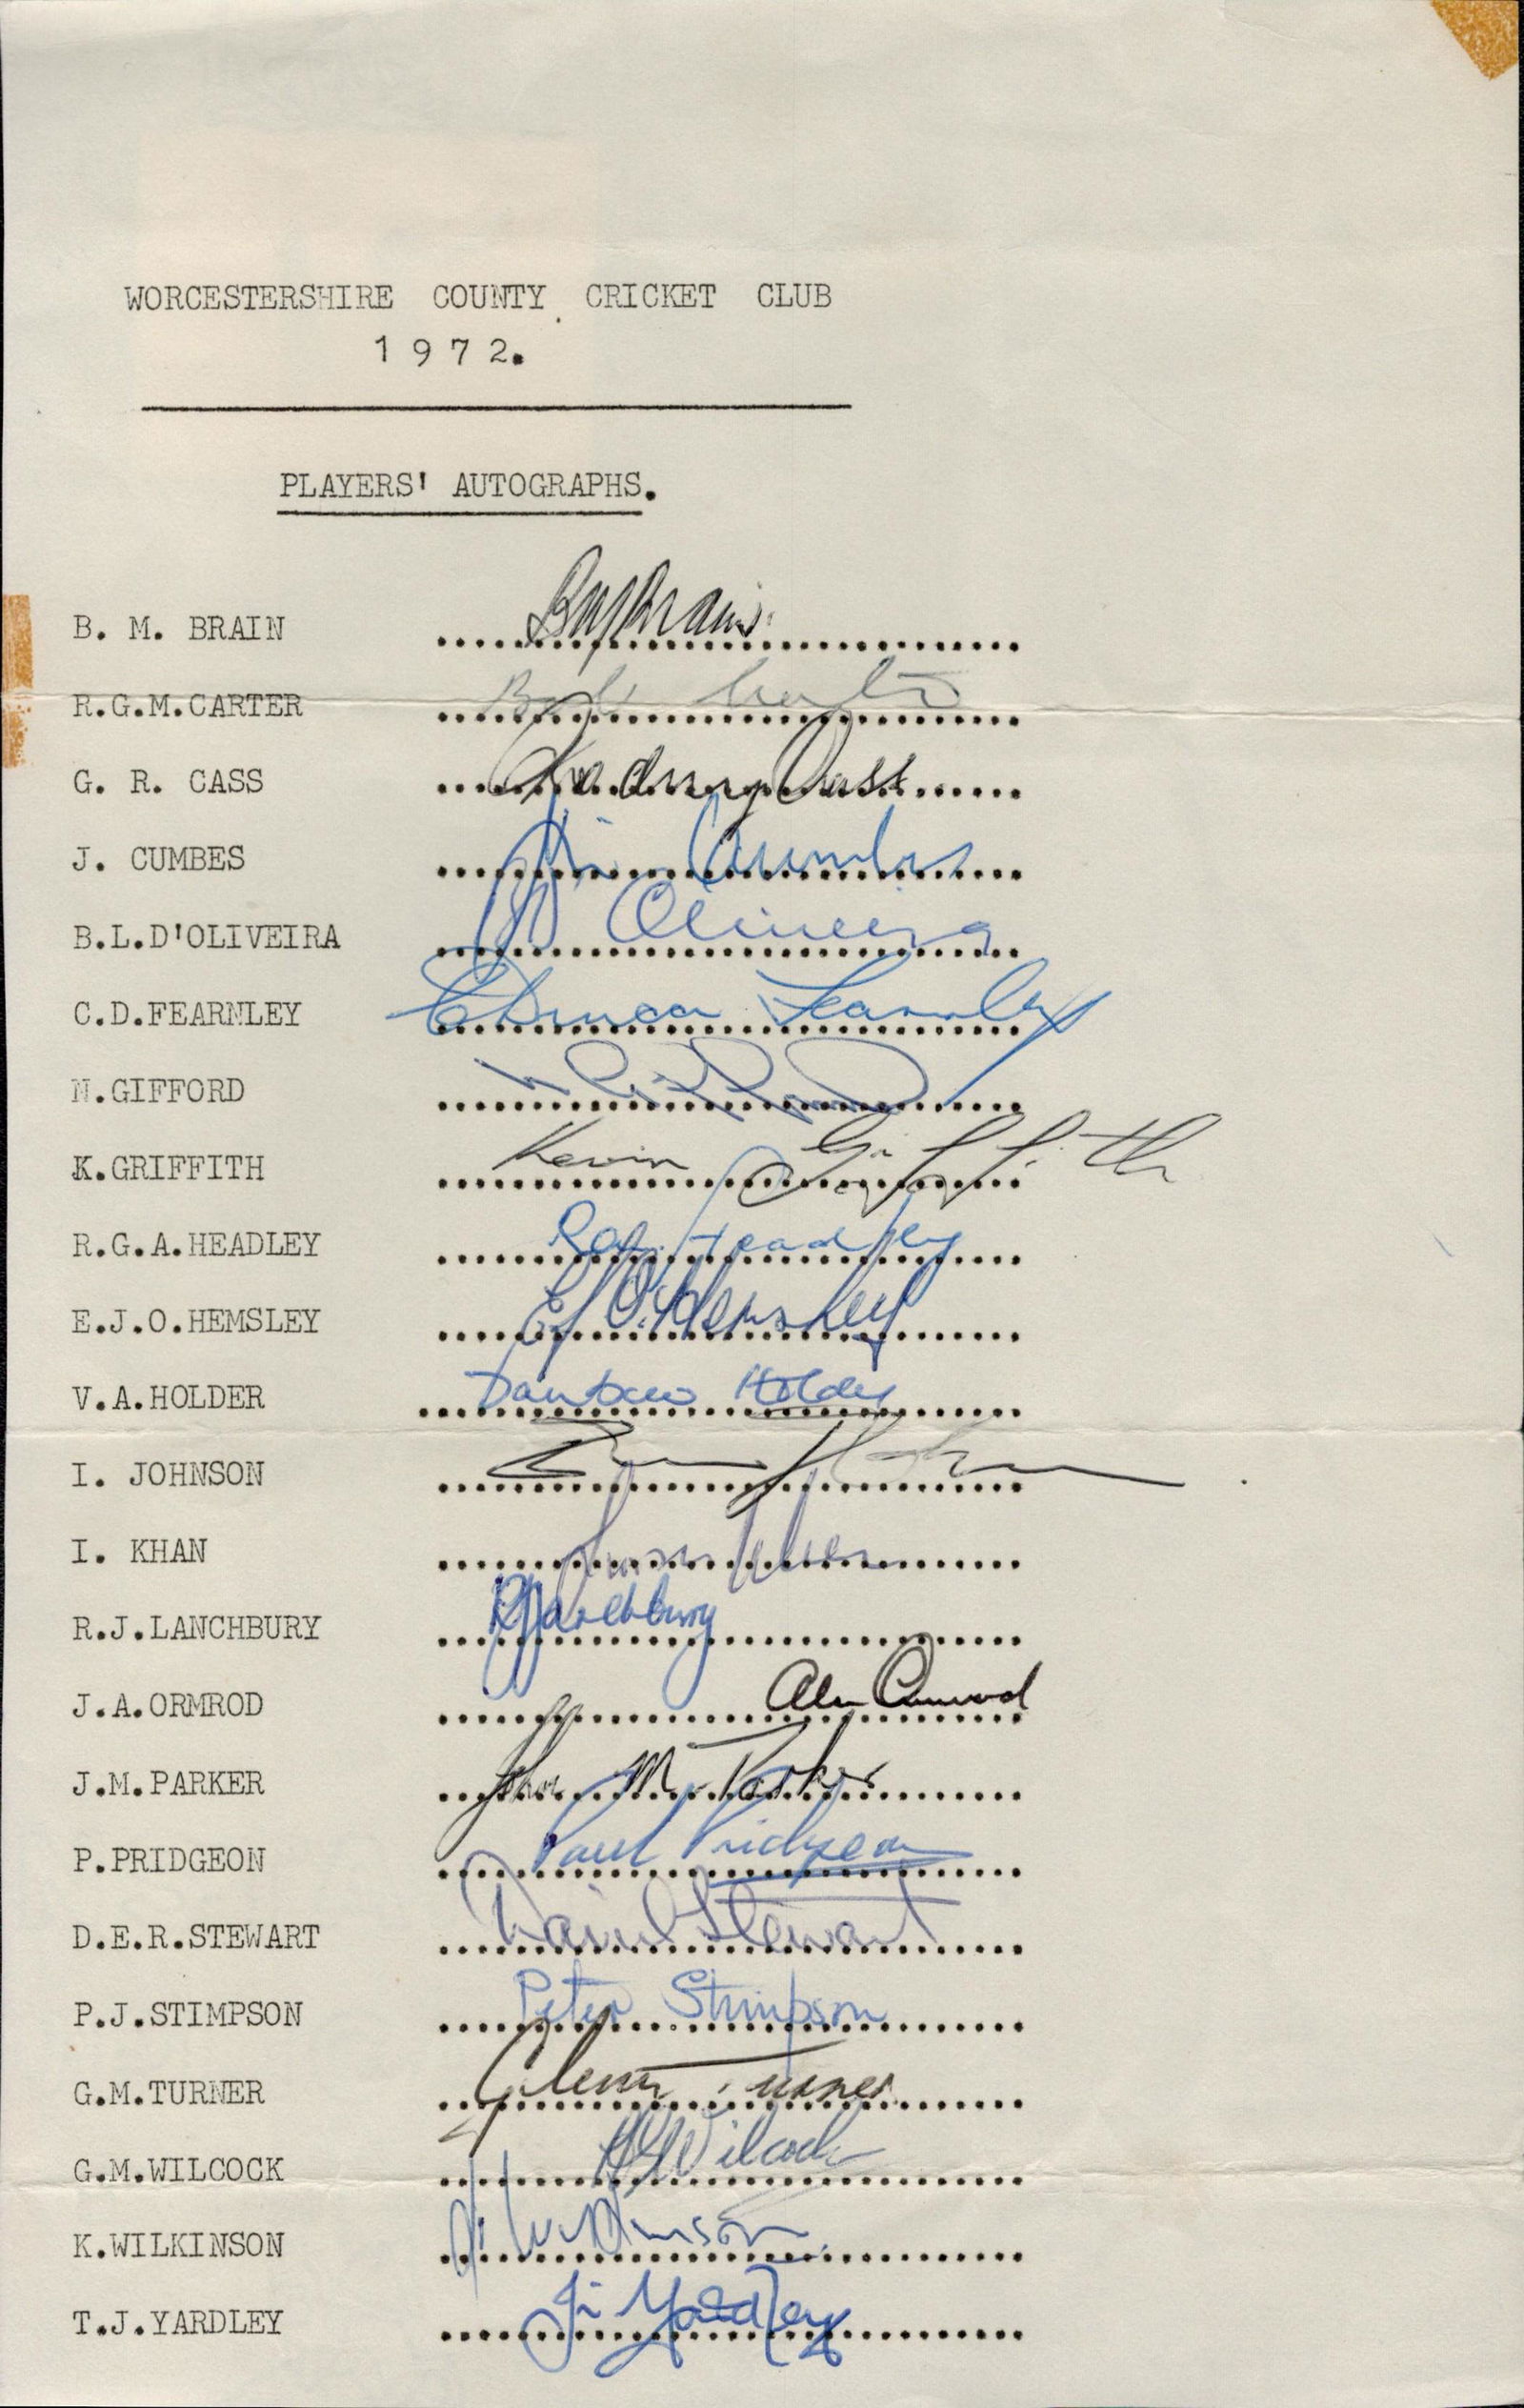 WORCESTERSHIRE COUNTY CRICKET CLUB
1972.
PLAYERS' AUTOGRAPHS.
B. M. BRAIN BMBrain
R.G.M.CARTER Bob Carter
G. R. CASS Rodney Cass
J. CUMBES Jim Cumbes
B.L.D'OLIVEIRA D'Oliveira
C.D.FEARNLEY C Duncan Fearnley
N.GIFFORD N Gifford
K.GRIFFITH Kevin Griffith
R.G.A.HEADLEY Ron Headley
E.J.O.HEMSLEY EJO.Hemsley
V.A.HOLDER Holder
I. JOHNSON
I. KHAN Imran Khan
R.J.LANCHBURY RJLanchbury
J.A.ORMROD Alan Ormrod
J.M.PARKER John M. Parker
P.PRIDGEON Paul Pridgeon
D.E.R.STEWART David Stewart
P.J.STIMPSON Peter Stimpson
G.M.TURNER Glenn Turner
G.M.WILCOCK Wilcock
K.WILKINSON K. Wilkinson
T.J.YARDLEY Jim Yardley